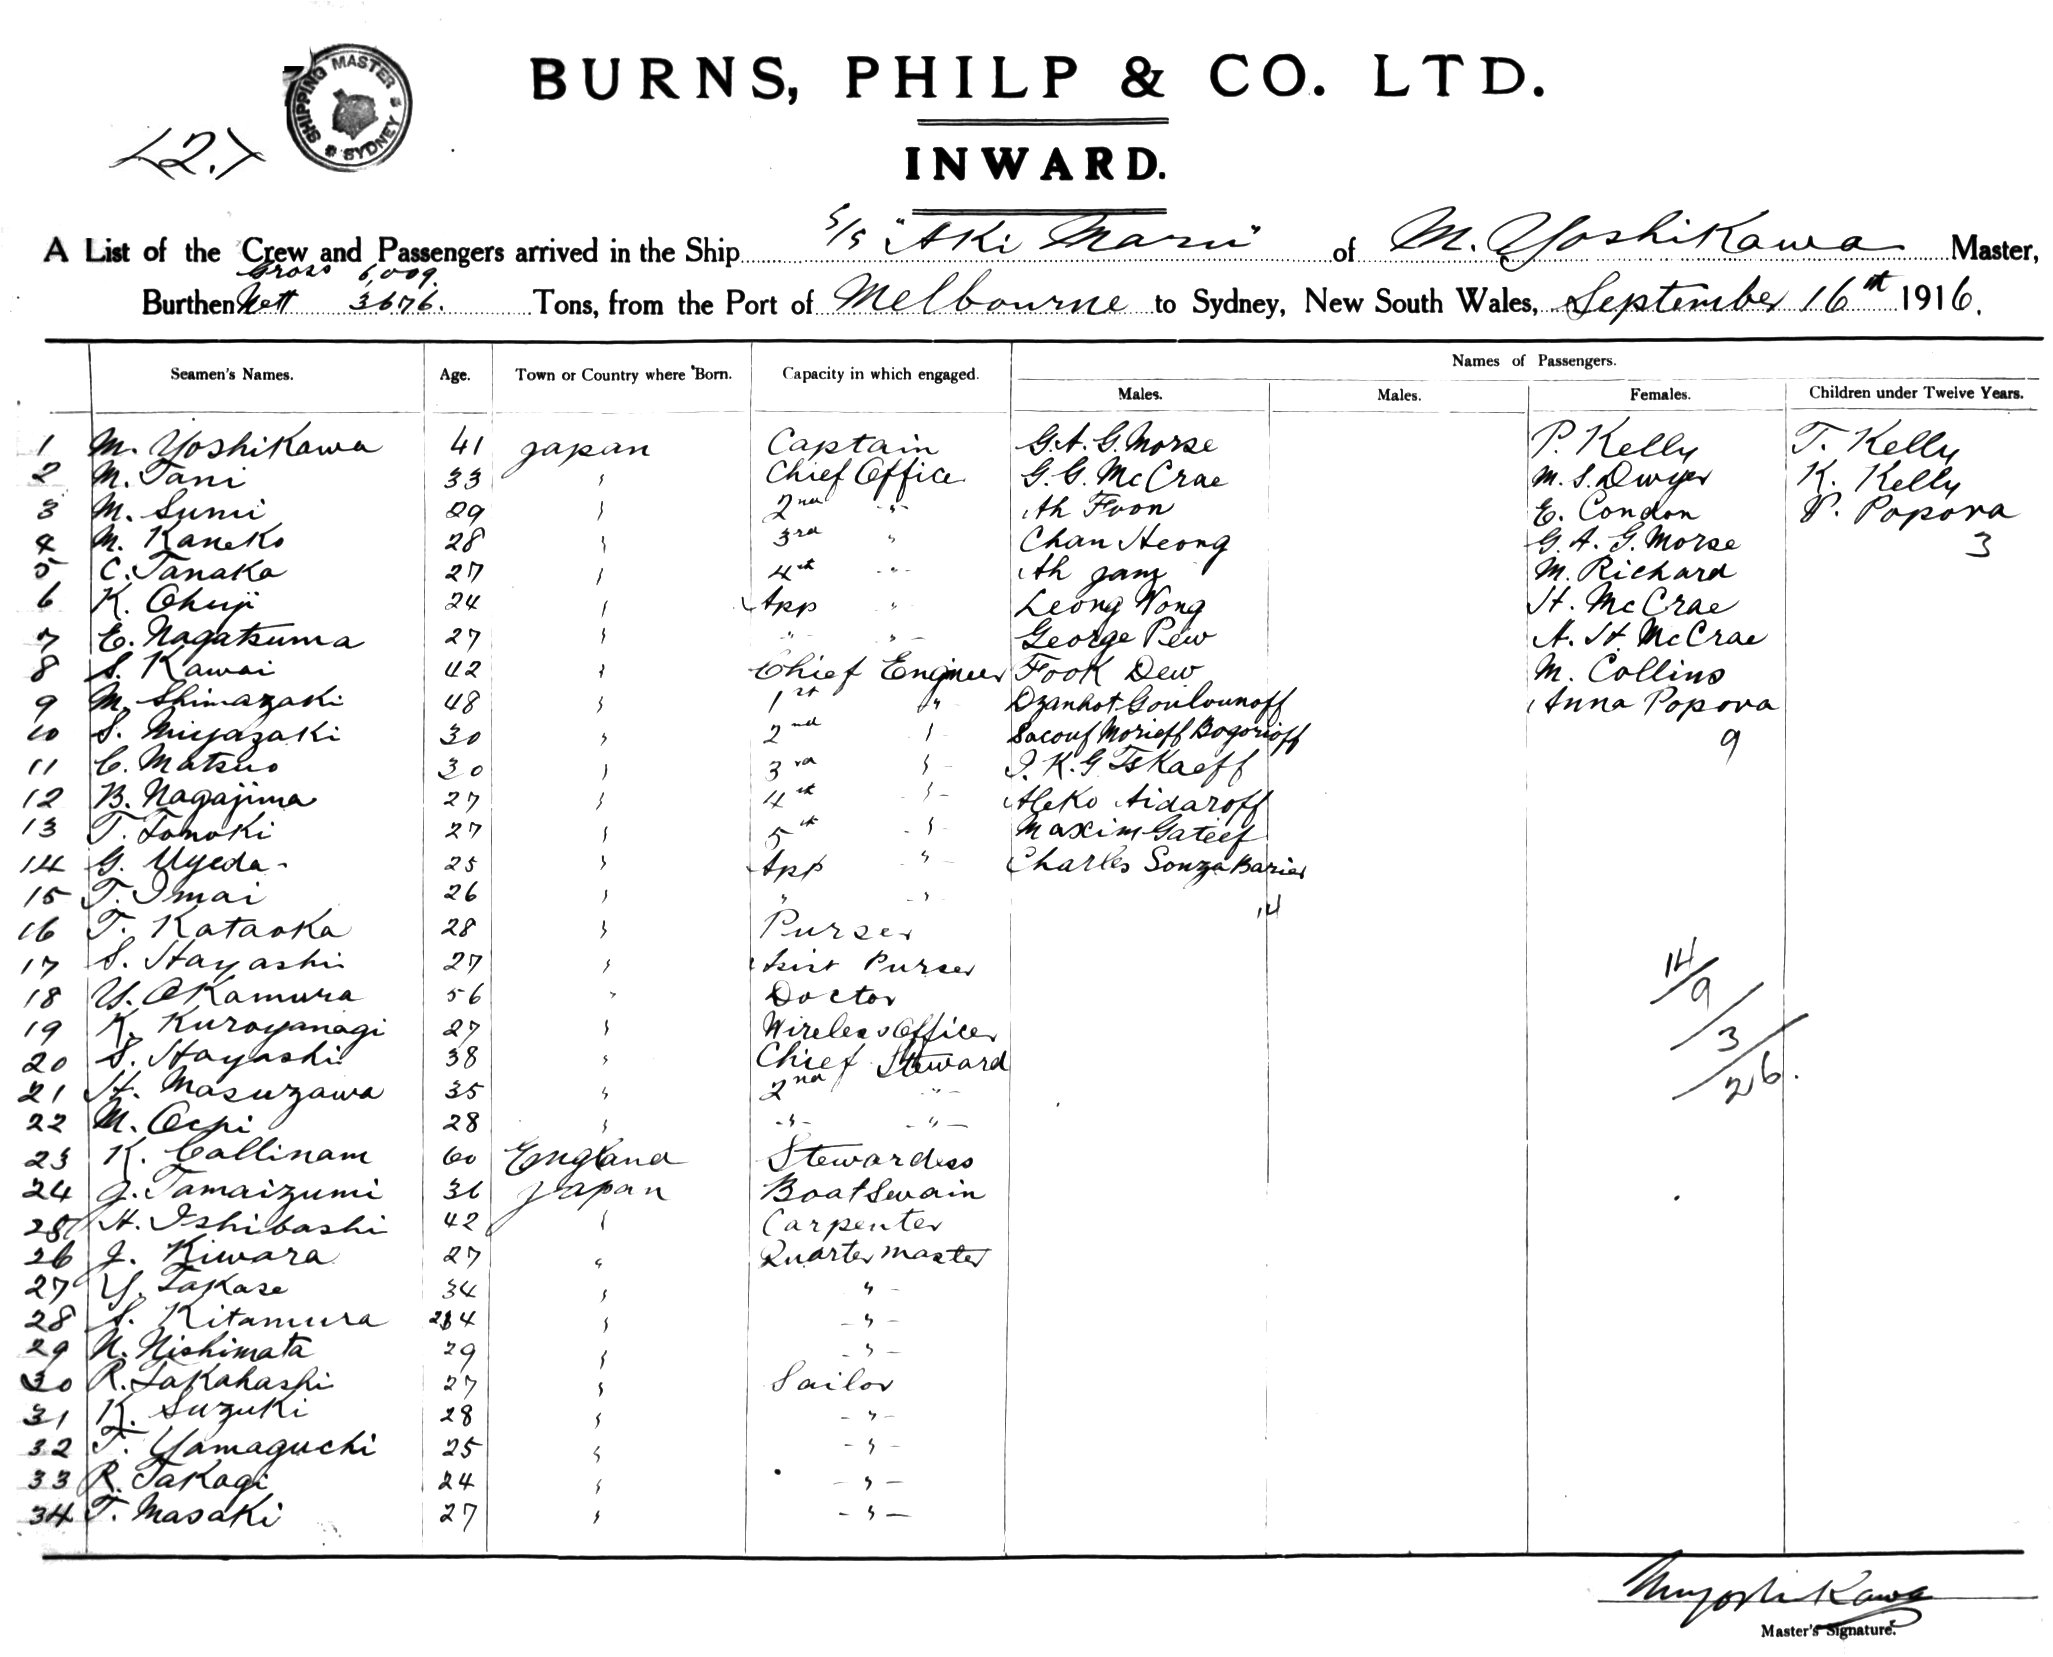 SHIPPING MASTER SYDNEY
<2.>
BURNS, PHILP & CO. LTD.
INWARD.
A List of the Crew and Passengers arrived in the Ship S/S "Aki Maru" of M. Yoshikawa Master,
Gross 6,009.
Burthen Nett 3676. Tons, from the Port of Melbourne to Sydney, New South Wales, September 16th 1916.
Names of Passengers.
Seamen's Names. Age. Town or Country where Born. Capacity in which engaged. Males. Males. Females. Children under Twelve Years.
1 M. Yoshikawa 41 Japan Captain G.A.G. Morse P. Kelly T. Kelly
2 M. Tani 33 " Chief Office G.G. McCrae M.S. Dwyer K. Kelly
3 M. Sumi 29 " 2nd " Ah Foon E. Condon P. Popova
4 M. Kaneko 28 " 3rd " Chan Heong G.A.G. Morse 3
5 C. Tanaka 27 " 4th " Ah Jang M. Richard
6 K. Ohuji 24 " App " Leong Wong H. McCrae
7 E. Nagatsuma 27 " " " George Pew A.H. McCrae
8 S. Kawai 42 " Chief Engineer Fook Dew M. Collins
9 M. Shimazaki 48 " 1st " Dzanhot Goulounoff Anna Popova
10 S. Miyazaki 30 " 2nd " Sacouf Morieff Bogorioff 9
11 C. Matsuo 30 " 3rd " I.K.G. Tskaeff
12 B. Nagajima 27 " 4th " Aleko Aidaroff
13 T. Tonoki 27 " 5th " Maxim Gateef
14 G. Uyeda 25 " App " Charles Souza Barier
15 T. Imai 26 " " "
14
16 T. Kataoka 28 " Purser
17 S. Hayashi 27 " Asist Purser
14
18 Y. Okamura 56 " Doctor
9
19 K. Kuroyanagi 27 " Wireless Officer
3
20 S. Hayashi 38 " Chief Steward
26.
21 H. Masuzawa 35 " 2nd "
22 M. Ochi 28 " " "
23 K. Callinam 60 England Stewardess
24 J. Tamaizumi 36 Japan Boatswain
25 H. Ishibashi 42 " Carpenter
26 J. Kiwara 27 " Quartermaster
27 Y. Takase 34 " "
28 S. Kitamura 34 " "
29 N. Nishimata 29 " "
30 R. Takahashi 27 " Sailor
31 K. Suzuki 28 " "
32 T. Yamaguchi 25 " "
33 R. Takagi 24 " "
34 T. Masaki 27 " "
M. Yoshikawa
Master's Signature.